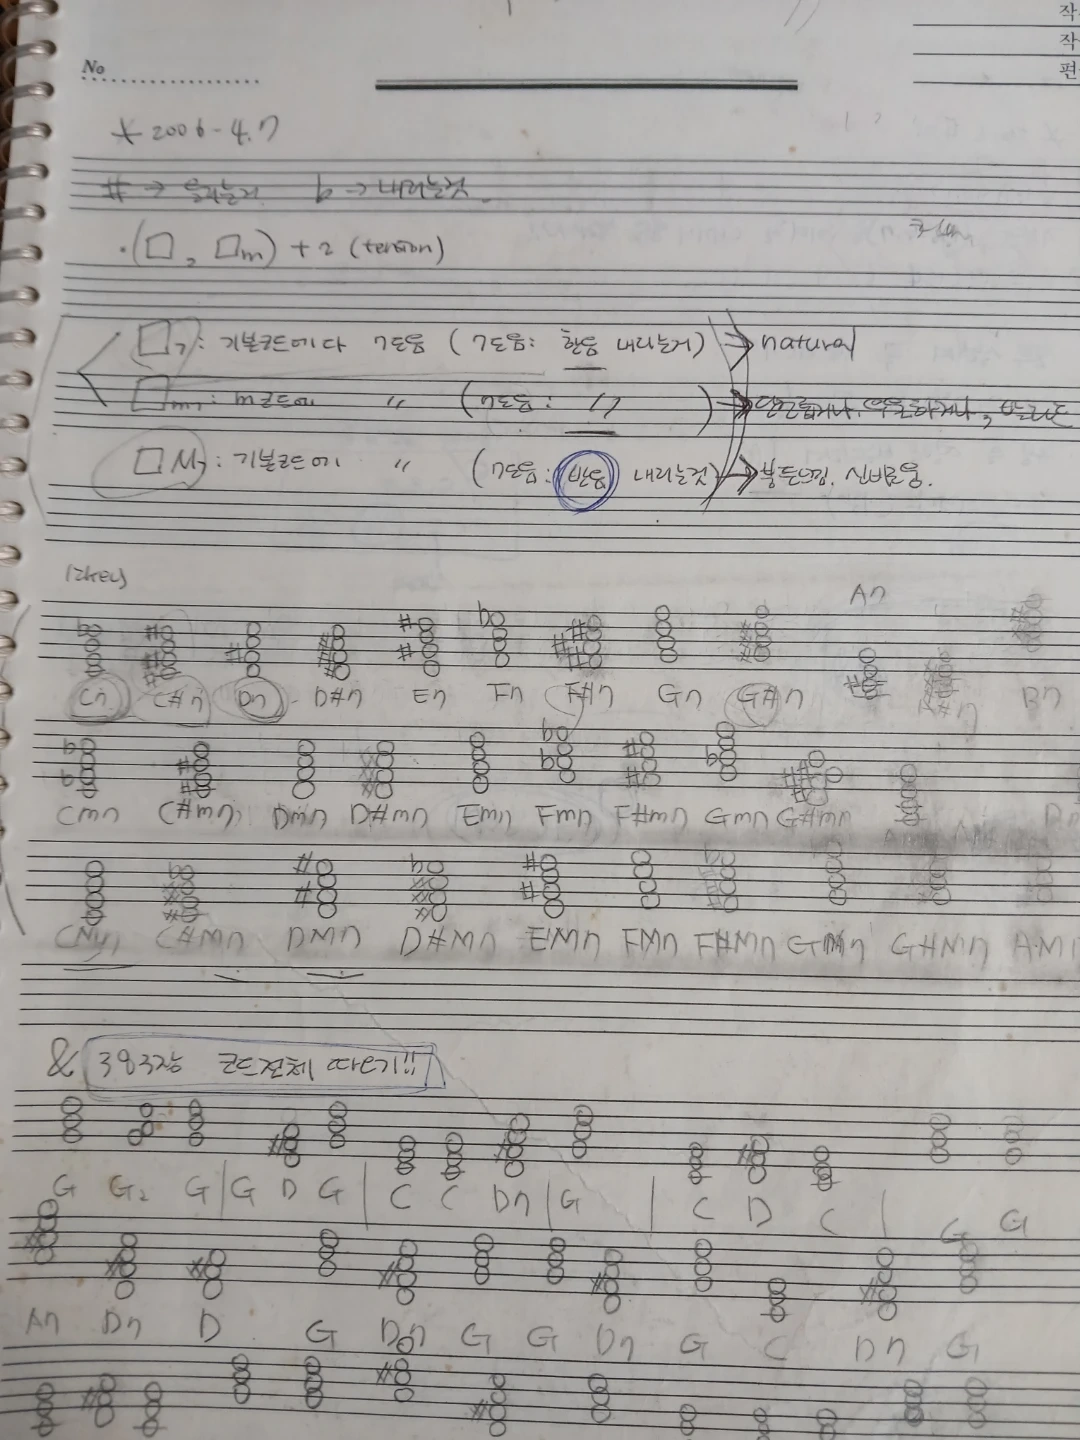 작
작
편
No
* 2006-4.7
# → 올리는거 b → 내리는것.
·(□, □m) + 2 (tension)
□7: 기본코드에다 7도음 (7도음: 한음 내리는거) → natural
□m7: m코드에 〃 (7도음: 〃) → 단조롭거나, 우울하거나,
□M7: 기본코드에 〃 (7도음: 반음 내리는것) → 붕뜬느낌, 신비로움.
12key
A7
C7 C#7 D7 D#7 E7 F7 F#7 G7 G#7 B7
Cm7 C#m7 Dm7 D#m7 Em7 Fm7 F#m7 Gm7 G#m7
CM7 C#M7 DM7 D#M7 EM7 FM7 F#M7 GM7 G#M7 AM7
& 383장 코드전체 따오기!!
G G2 G | G D G | C C D7 | G | C D C | G G
A7 D7 D G D7 G G D7 G C D7 G